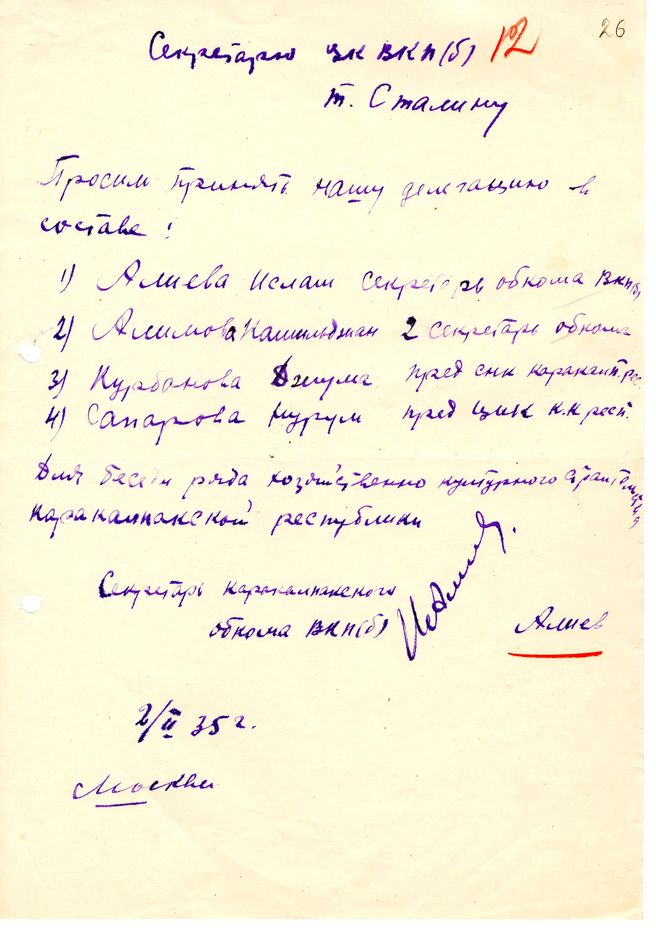 26
Секретарю ЦК ВКП(б) 12
т. Сталину
Просим принять нашу делегацию в
составе:
1) Алиева Ислам секретарь обкома ВКП(б)
2) Алимова 2 секретарь обкома
3) Курбанова Джума пред снк каракалп. рес.
4) Сапарова Нурум пред ЦИК К.К респ.
Для беседы ряда хозяйственно культурного строительства
Каракалпакской республики
Секретарь Каракалпакского
обкома ВКП(б) Алиев
2/II 35 г.
Москва